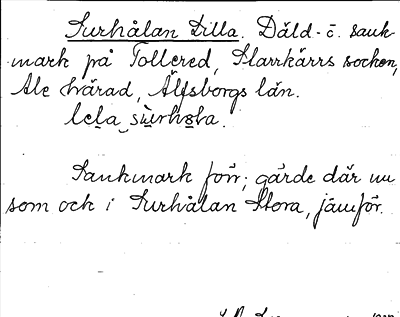 Surhålan Lilla. Däld- c. sank
mark på Tollered, Starrkärrs socken,
Ale härad, Älfsborgs län.
lela sùrhola.
Sankmark förr; gärde där nu
som ock i Surhålan Stora, jämför.